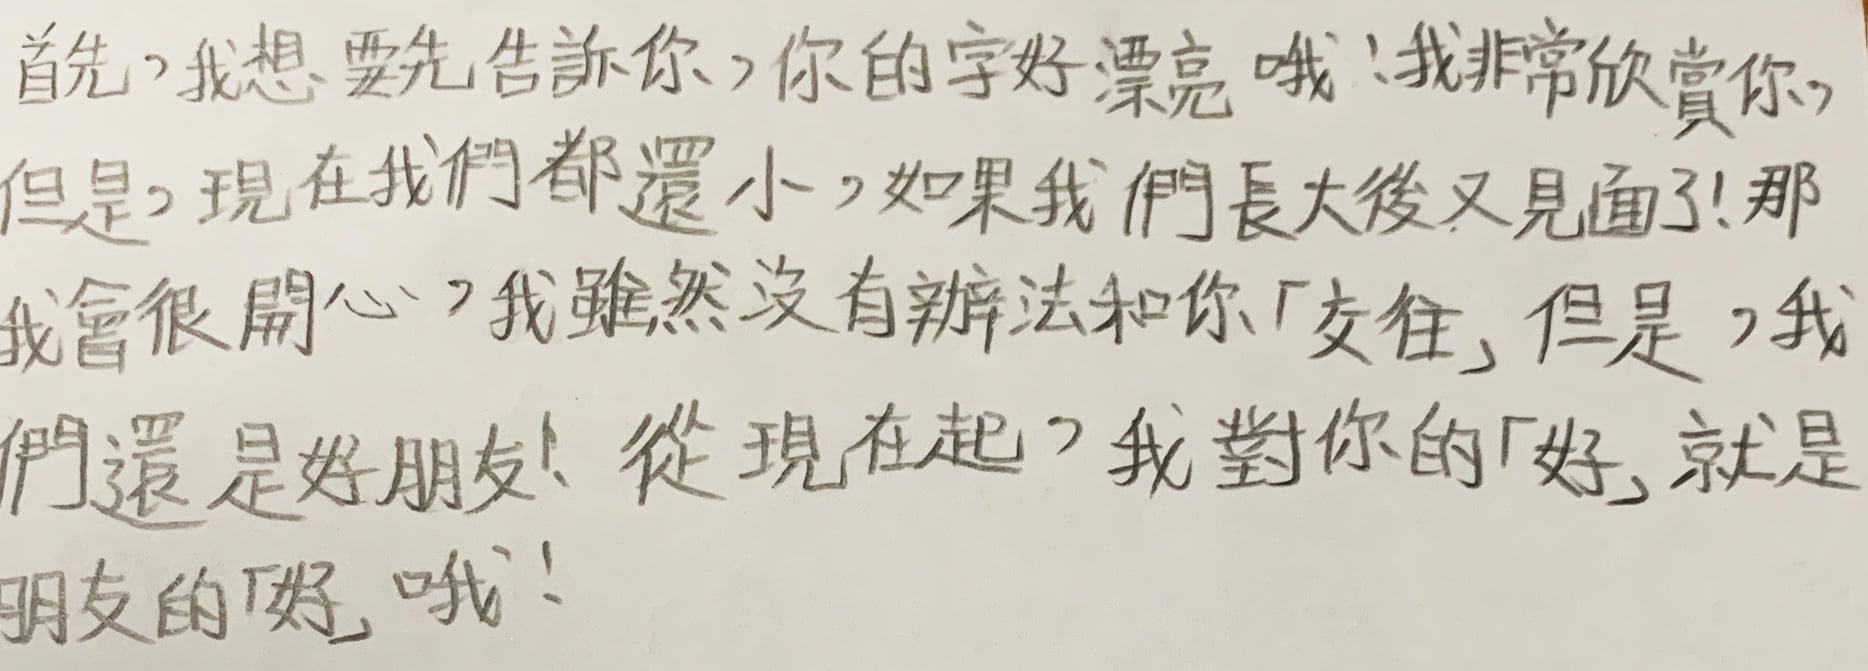 首先，我想要先告訴你，你的字好漂亮哦！我非常欣賞你，
但是，現在我們都還小，如果我們長大後又見面了！那
我會很開心，我雖然沒有辦法和你「交往」但是，我
們還是好朋友！從現在起，我對你的「好」就是
朋友的「好」哦！